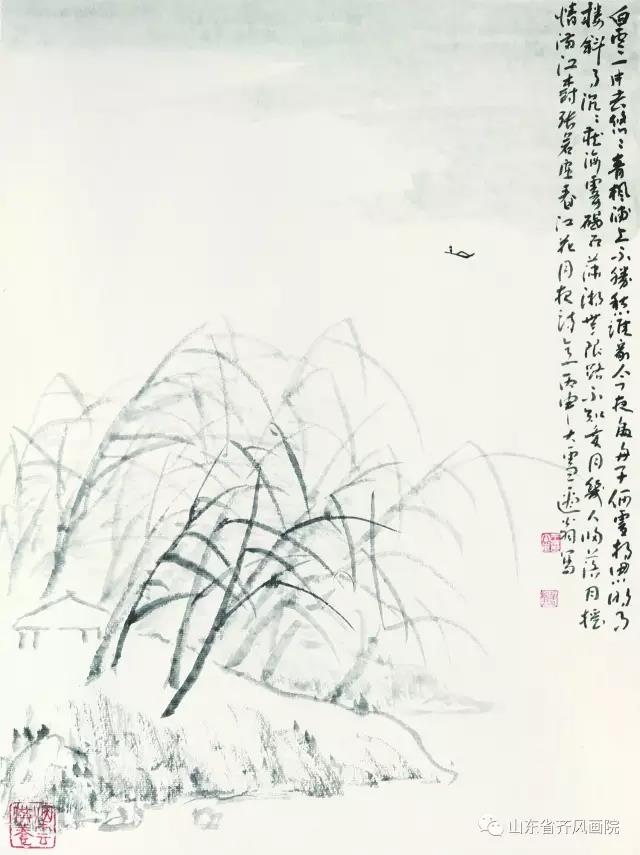 白雲一片去悠〻青楓浦上不勝愁誰家今夜扁舟子何處相思明月
樓斜月沉〻藏海霧碣石瀟湘無限路不知乘月幾人歸落月搖
情滿江樹張若虛春江花月夜詩意丙申大雪翁寫
烟云供養
山东省齐风画院